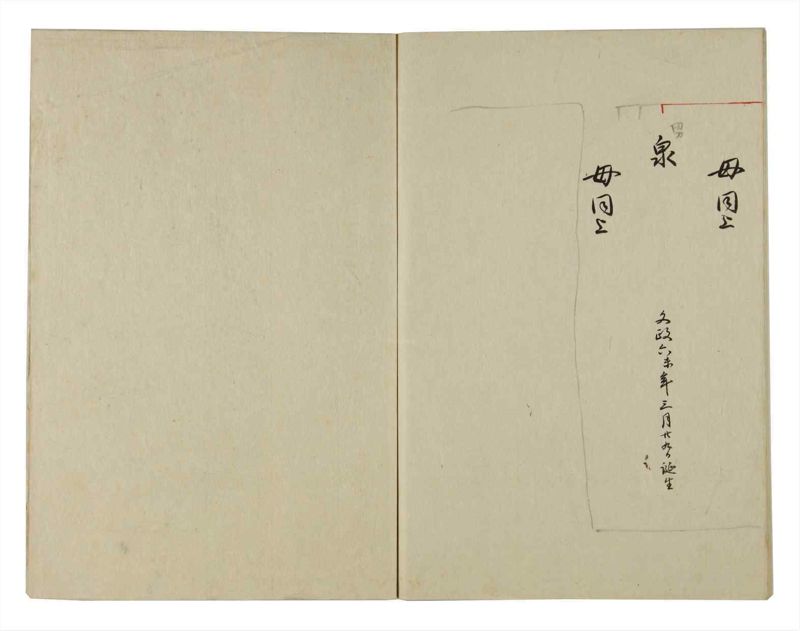 母同上
男
泉
文政六未年三月廿九日誕生
母同上